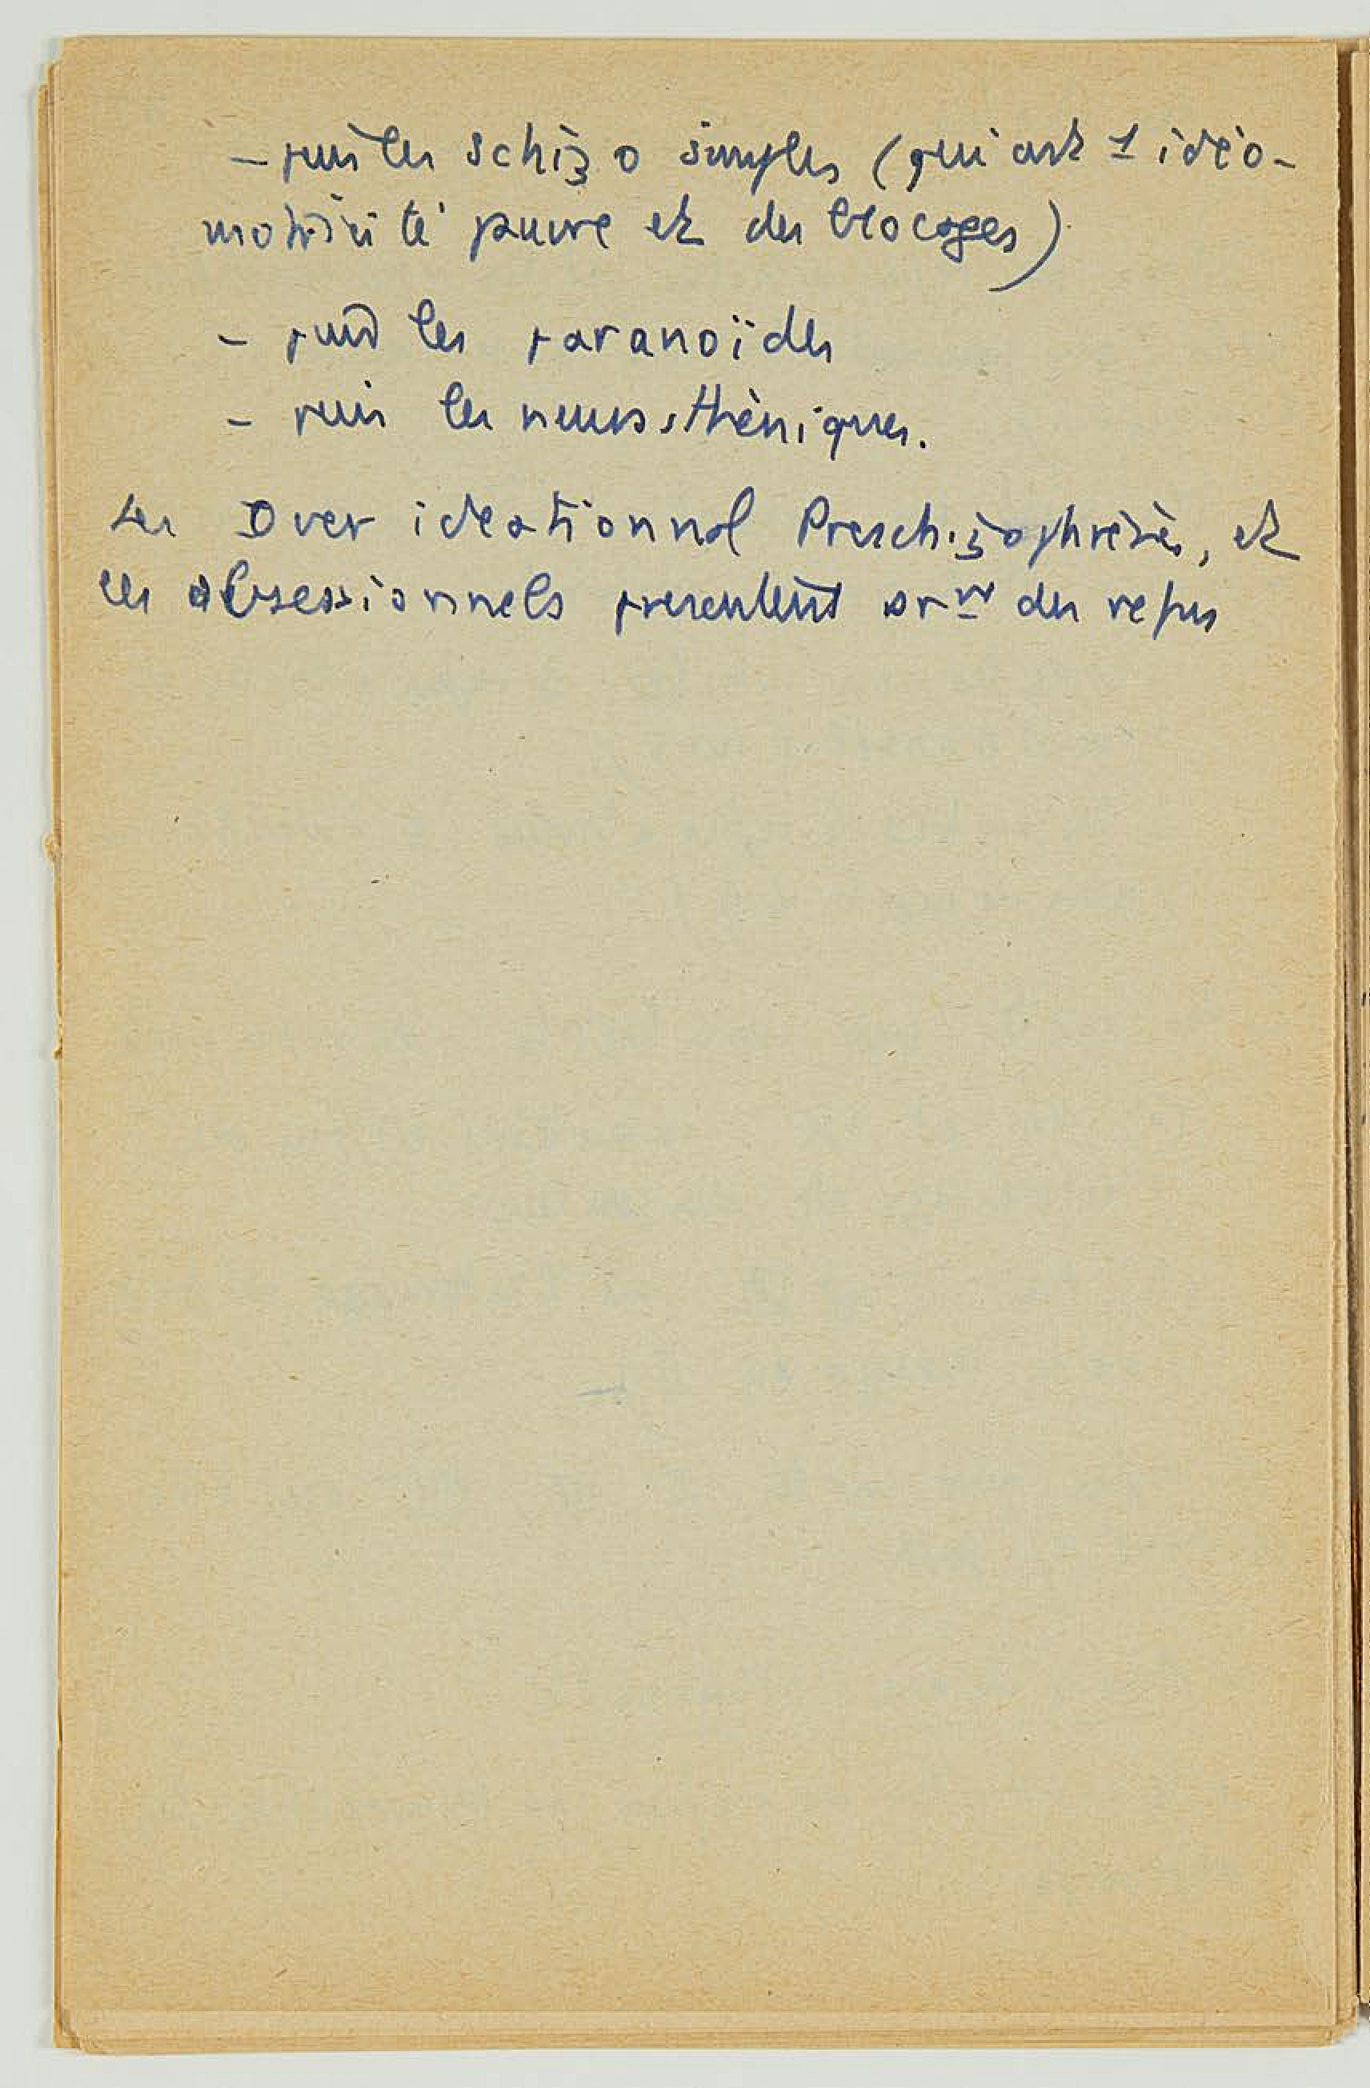 - puis les schizo simples (qui ont 1 idéo-
motricité pauvre et des blocages)
- puis les paranoïdes
- puis les neurasthéniques.
Les Over ideationnal Preschizophrenics, et
les obsessionnels présentent des refus